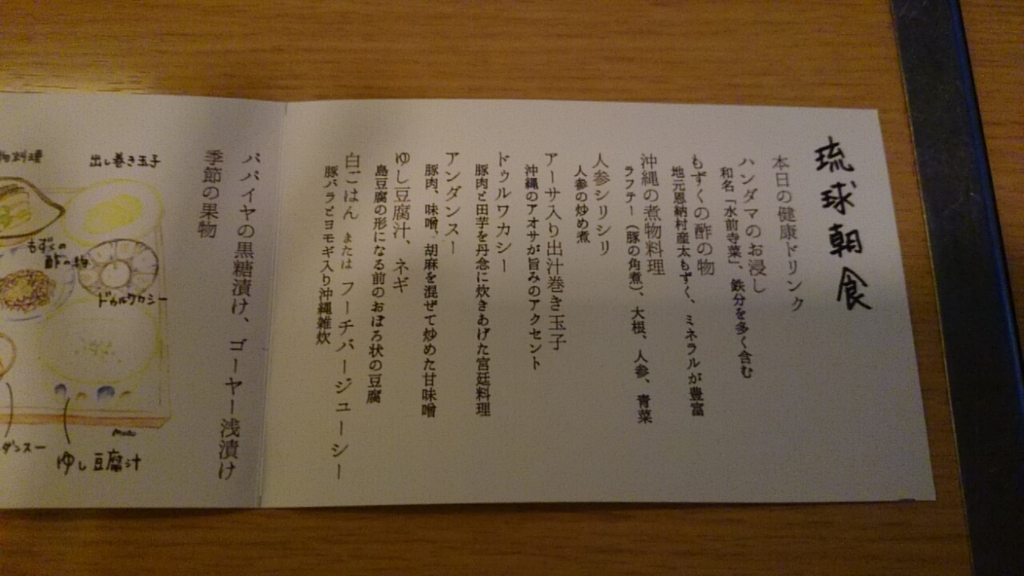 琉球朝食
本日の健康ドリンク
ハンダマのお浸し
和名「水前寺菜」、鉄分を多く含む
もずくの酢の物
地元恩納村産太もずく、ミネラルが豊富
沖縄の煮物料理
ラフテー（豚の角煮）、大根、人参、青菜
人参シリシリ
人参の炒め煮
アーサ入り出汁巻き玉子
沖縄のアオサが旨みのアクセント
ドゥルワカシー
豚肉と田芋を丹念に炊きあげた宮廷料理
アンダンスー
豚肉、味噌、胡麻を混ぜて炒めた甘味噌
ゆし豆腐汁、ネギ
島豆腐の形になる前のおぼろ状の豆腐
白ごはん または フーチバージューシー
豚バラとヨモギ入り沖縄雑炊
パパイヤの黒糖漬け、ゴーヤー浅漬け
季節の果物
出し巻き玉子
物料理
もずくの
酢の物
ドゥルワカシー
ダンスー
ゆし豆腐汁